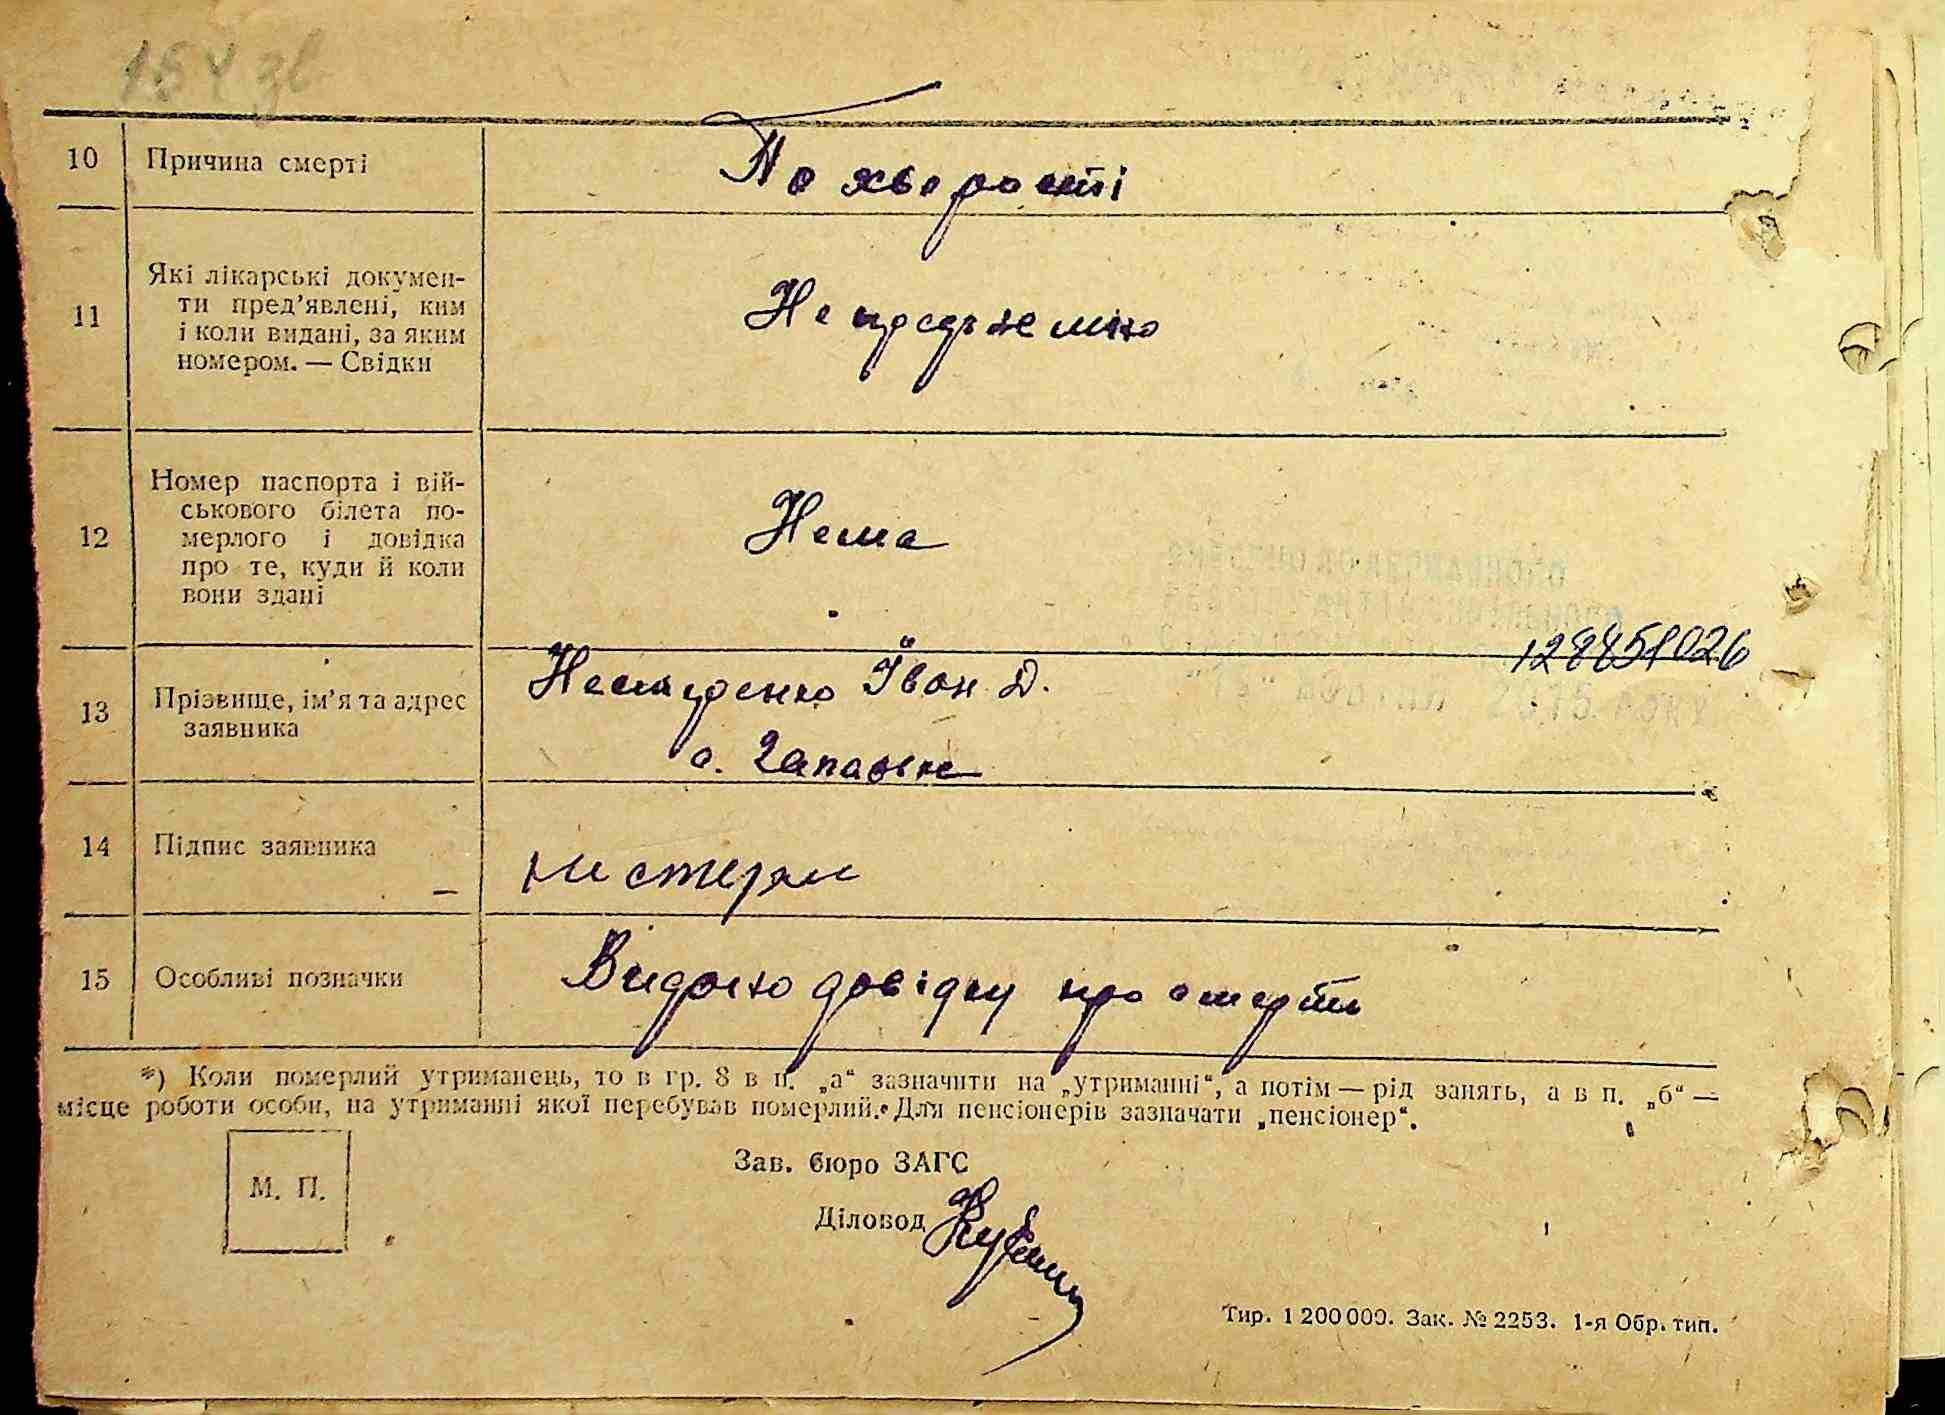 154 зв
10 Причина смерті По хворості
11 Які лікарські докумен-
ти пред’явлені, ким
і коли видані, за яким
номером. — Свідки
Не предъявлено
12 Номер паспорта і вій-
ськового білета по-
мерлого і довідка
про те, куди й коли
вони здані
Нема
128451026
13 Прізвище, ім’я та адрес
заявника
Нестеренко Іван Д.
с.
14 Підпис заявника
15 Особливі позначки Видано довідку про смерть
*) Коли померлий утриманець, то в гр. 8 в п. „а“ зазначити на „утриманні“, а потім — рід занять, а в п. „б“ —
місце роботи особи, на утриманні якої перебував померлий. Для пенсіонерів зазначати „пенсіонер“.
М. П.
Зав. бюро ЗАГС
Діловод
Тир. 1 200 000. Зак. № 2253. 1-я Обр. тип.